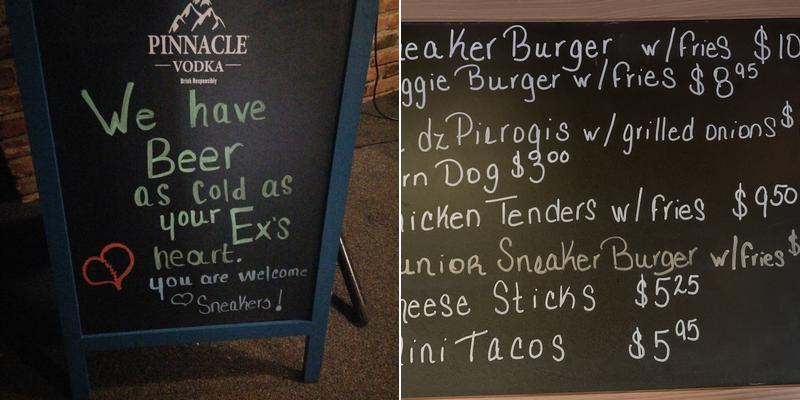 PINNACLE
VODKA
Drink Responsibly
We have
Beer
as cold as
your Ex's
heart.
you are welcome
Sneakers!
eaker Burger w/fries $10
ggie Burger w/fries $8.95
dz Pierogis w/grilled onions $
rn Dog $3.00
icken Tenders w/fries $9.50
unior Sneaker Burger w/fries $
heese Sticks $5.25
ini Tacos $5.95